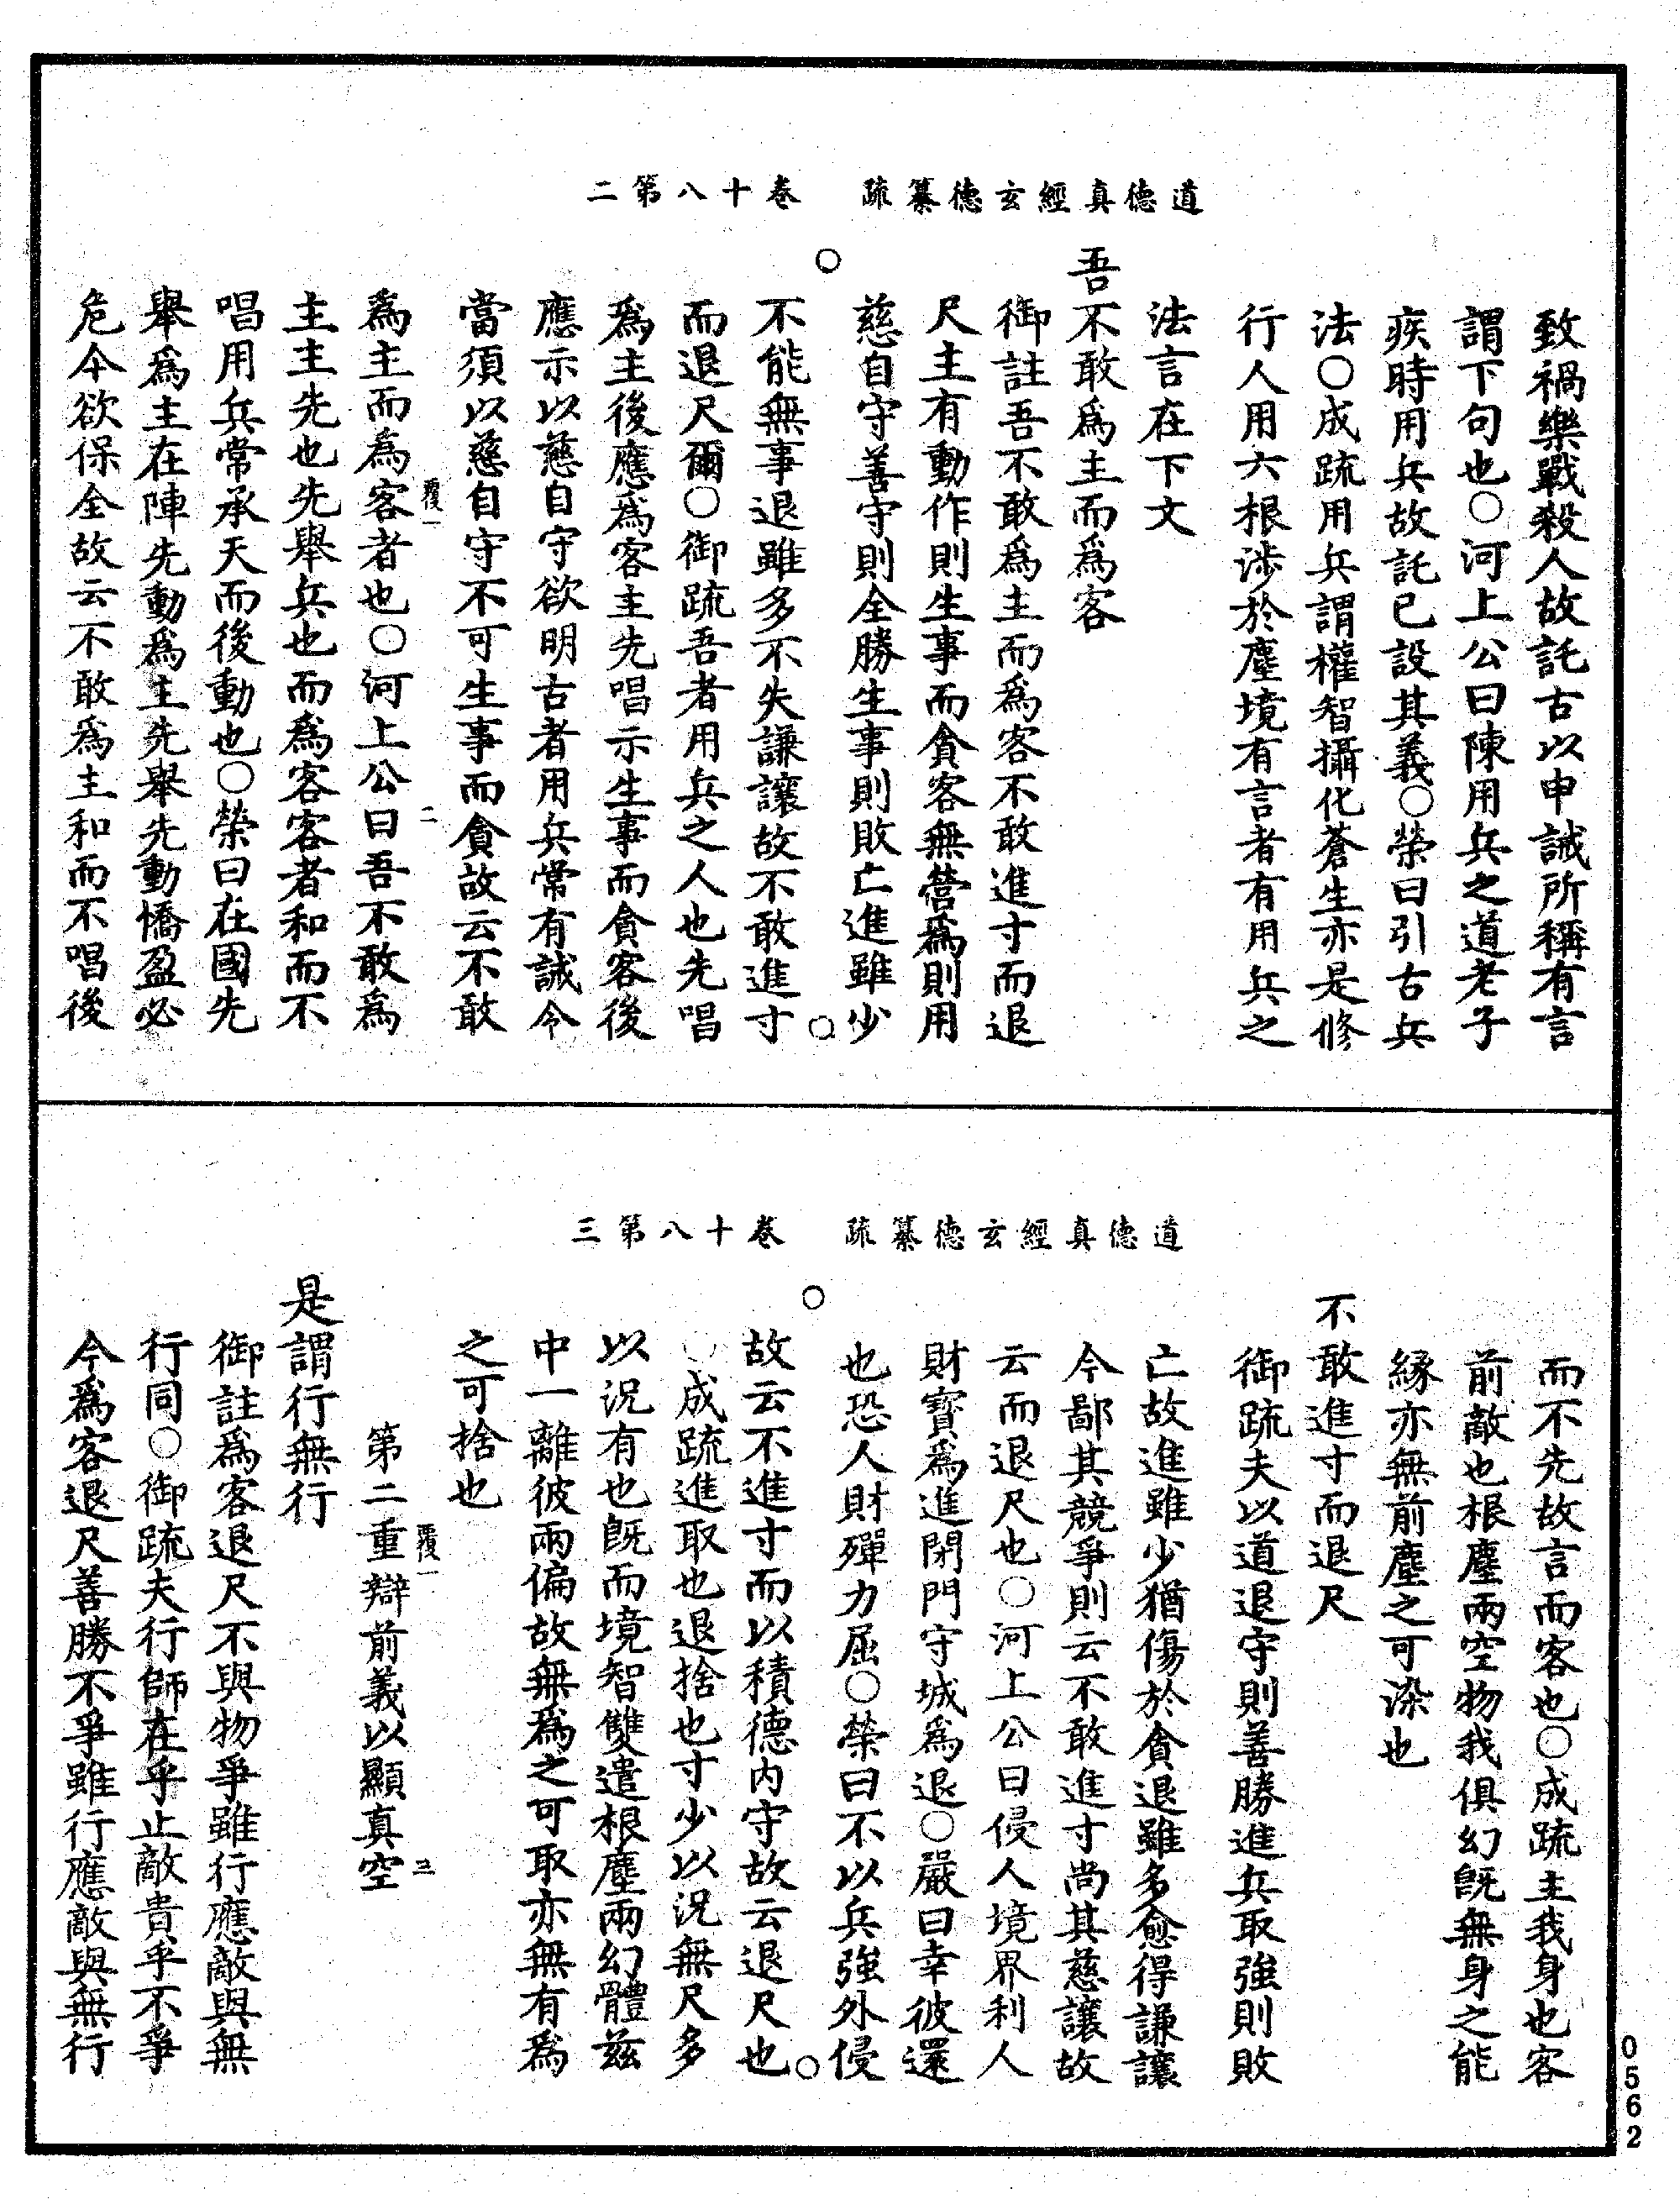 道德真經玄德纂疏　卷十八第二
致禍樂戰殺人故託古以申誡所稱有言
謂下句也○河上公曰陳用兵之道老子
疾時用兵故託已設其義○榮曰引古兵
法○成疏用兵謂權智攝化蒼生亦是修
行人用六根涉於塵境有言者有用兵之
法言在下文
吾不敢為主而為客
御註吾不敢為主而為客不敢進寸而退
尺主有動作則生事而貪客無營為則用
慈自守善守則全勝生事則敗亡進雖少
不能無事退雖多不失謙讓故不敢進寸
而退尺爾○御疏吾者用兵之人也先唱
為主後應為客主先唱示生事而貪客後
應示以慈自守欲明古者用兵常有誡令
當須以慈自守不可生事而貪故云不敢
覆一　二
為主而為客者也○河上公曰吾不敢為
主主先也先舉兵也而為客客者和而不
唱用兵常承天而後動也○榮曰在國先
舉為主在陣先動為主先舉先動憍盈必
危今欲保全故云不敢為主和而不唱後
道德真經玄德纂疏　卷十八第三
而不先故言而客也○成疏主我身也客
前敵也根塵兩空物我俱幻既無身之能
緣亦無前塵之可染也
不敢進寸而退尺
御疏夫以道退守則善勝進兵取強則敗
亡故進雖少猶傷於貪退雖多愈得謙讓
今鄙其競爭則云不敢進寸尚其慈讓故
云而退尺也○河上公曰侵人境界利人
財寶為進閉門守城為退○嚴曰幸彼還
也恐人財殫力屈○榮曰不以兵強外侵
故云不進寸而以積德內守故云退尺也
○成疏進取也退捨也寸少以況無尺多
以況有也既而境智雙遣根塵兩幻體茲
中一離彼兩偏故無為之可取亦無有為
之可捨也
覆一　三
第二重辯前義以顯真空
是謂行無行
御註為客退尺不與物爭雖行應敵與無
行同○御疏夫行師在乎止敵貴乎不爭
今為客退尺善勝不爭雖行應敵與無行
0562